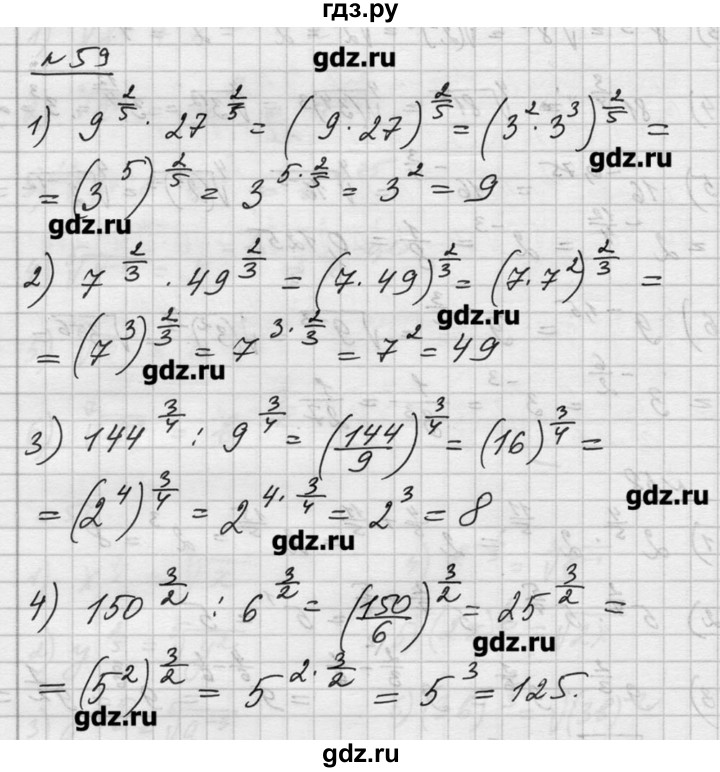 гдз.ру
№59
gdz.ru
1) 9^{2/5} · 27^{2/5} = (9·27)^{2/5} = (3^2·3^3)^{2/5} =
gdz.ru
= (3^5)^{2/5} = 3^{5·2/5} = 3^2 = 9
gdz.ru
2) 7^{2/3} · 49^{2/3} = (7·49)^{2/3} = (7·7^2)^{2/3} =
gdz.ru
= (7^3)^{2/3} = 7^{3·2/3} = 7^2 = 49
gdz.ru
3) 144^{3/4} : 9^{3/4} = (144/9)^{3/4} = (16)^{3/4} =
gdz.ru
= (2^4)^{3/4} = 2^{4·3/4} = 2^3 = 8
gdz.ru
4) 150^{3/2} : 6^{3/2} = (150/6)^{3/2} = 25^{3/2} =
gdz.ru
= (5^2)^{3/2} = 5^{2·3/2} = 5^3 = 125.
gdz.ru
gdz.ru